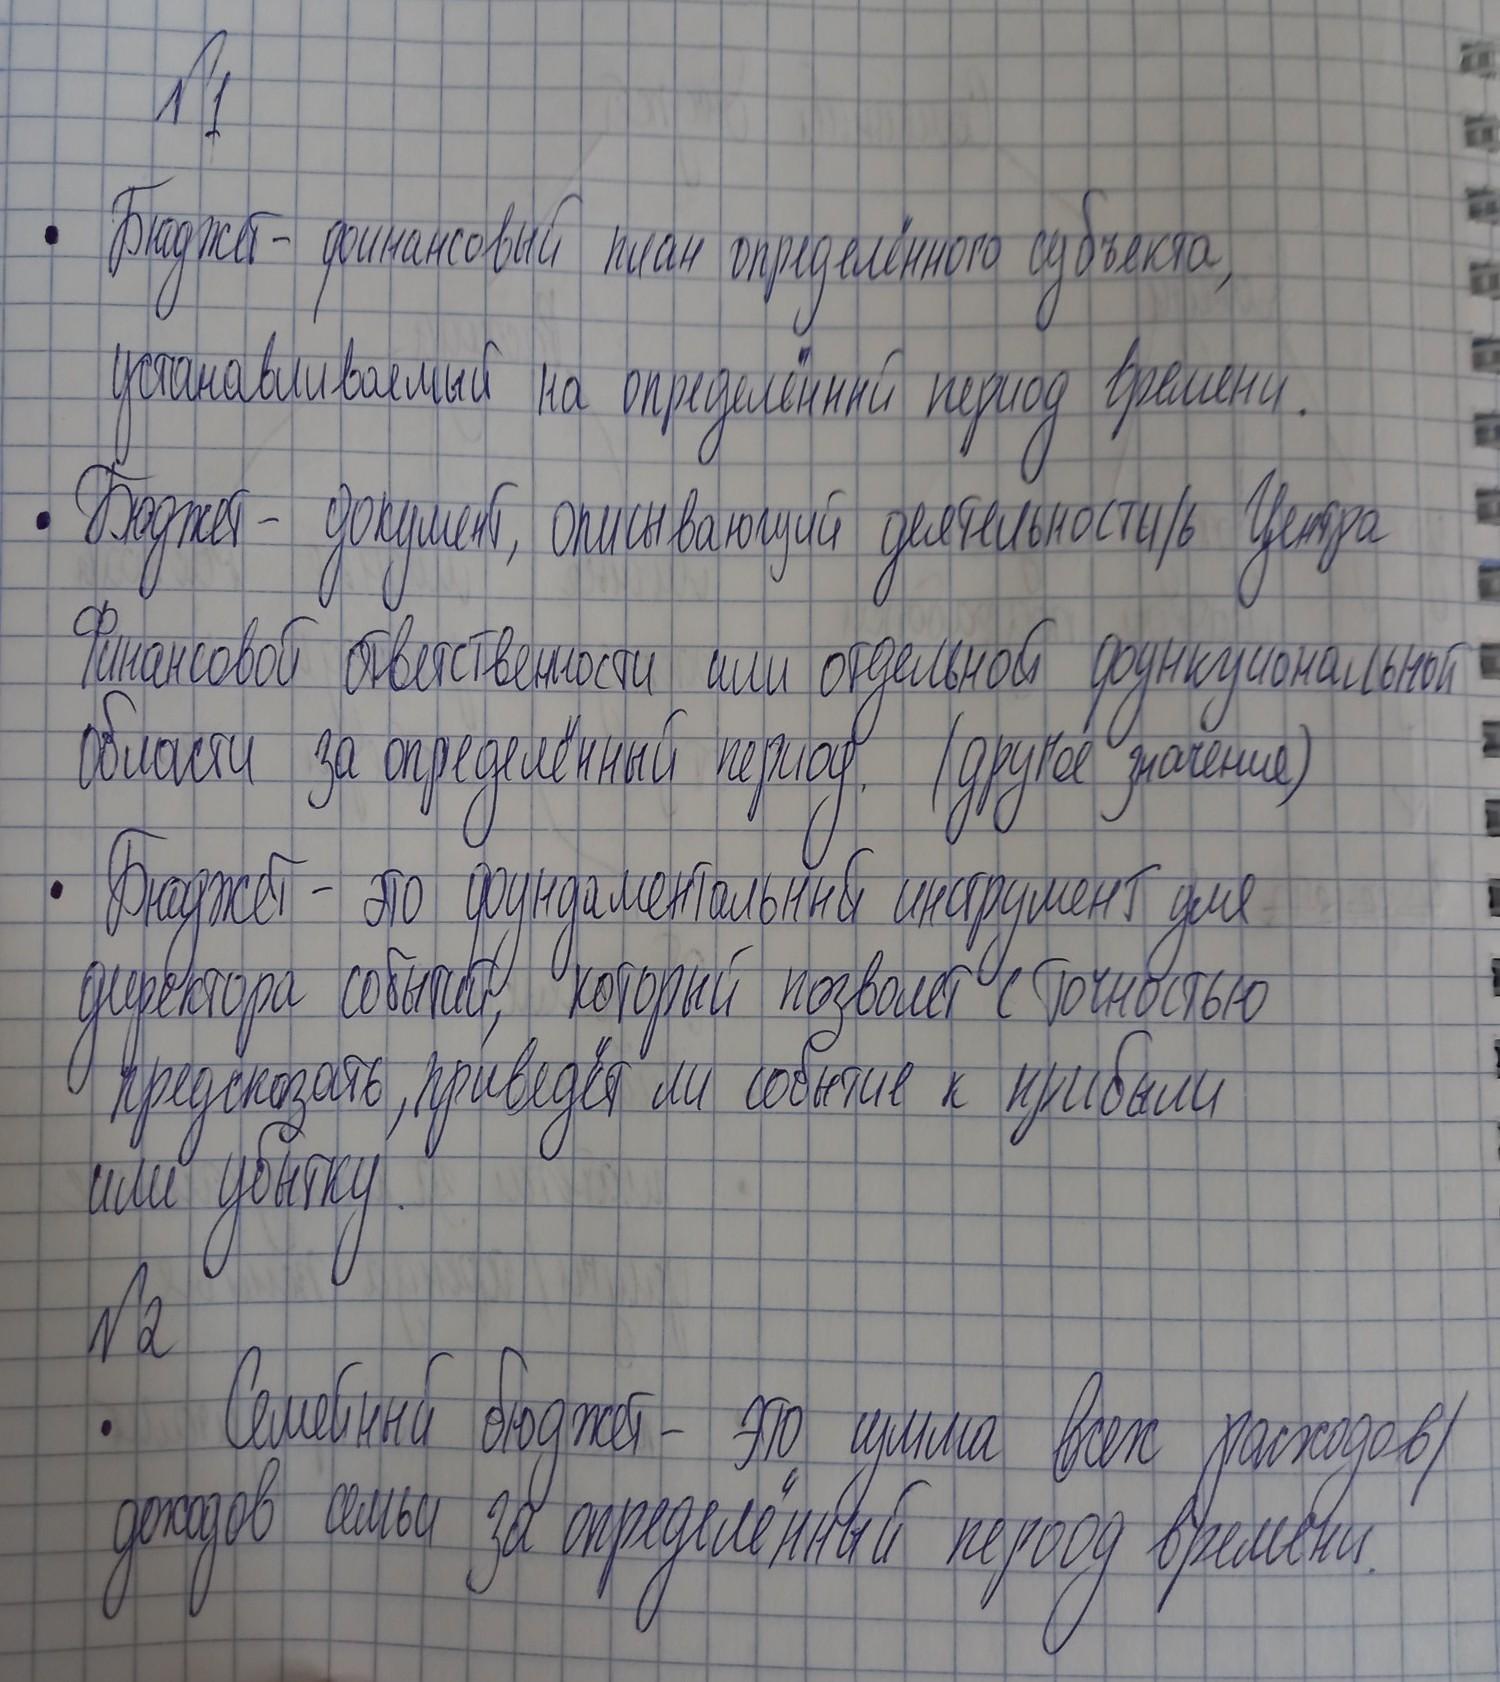 №1
• Бюджет - финансовый план определённого субъекта,
устанавливаемый на определённый период времени.
• Бюджет - документ, описывающий деятельности/ь Центра
Финансовой ответственности или отдельной функциональной
области за определённый период. (другое значение)
• Бюджет - это фундаментальный инструмент для
директора событий, который позволет с точностью
предсказать, приведёт ли событие к прибыли
или убытку.
№2
• Семейный бюджет - это сумма всех расходов/
доходов семьи за определённый период времени.